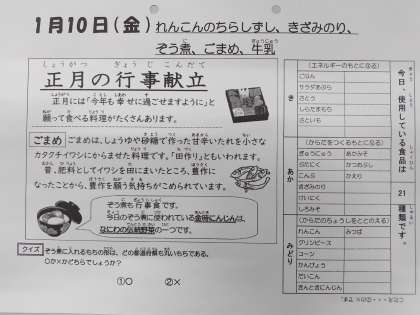 1月10日(金) れんこんのちらしずし、きざみのり、
ぞう煮、ごまめ、牛乳
正月の行事献立
正月には「今年も幸せに過ごせますように」と
願って食べる料理がたくさんあります。
ごまめ ごまめは、しょうゆや砂糖で作った甘辛いたれを小さな
カタクチイワシにからませた料理です。「田作り」ともいわれます。
昔、肥料としてイワシを田にまいたところ、豊作に
なったことから、豊作を願う気持ちがこめられています。
ぞう煮も行事食です。
今日のぞう煮に使われている金時にんじんは、
なにわの伝統野菜の一つです。
クイズ ぞう煮に入れるもちの形は、どの都道府県も丸いもちである。
○か×かどちらでしょうか?
①○ ②×
今日、使用している食品は
21
種類です。
き
(エネルギーのもとになる)
ごはん
サラダあぶら
さとう
しらたまもち
さといも
あか
(からだをつくるもとになる)
ぎゅうにゅう あかみそ
ぶたにく かつおぶし
こんぶ かえり
きざみのり
けいにく
しろみそ
みどり
(からだのちょうしをととのえる)
れんこん みつば
グリンピース
コーン
かんぴょう
だいこん
きんときにんじん